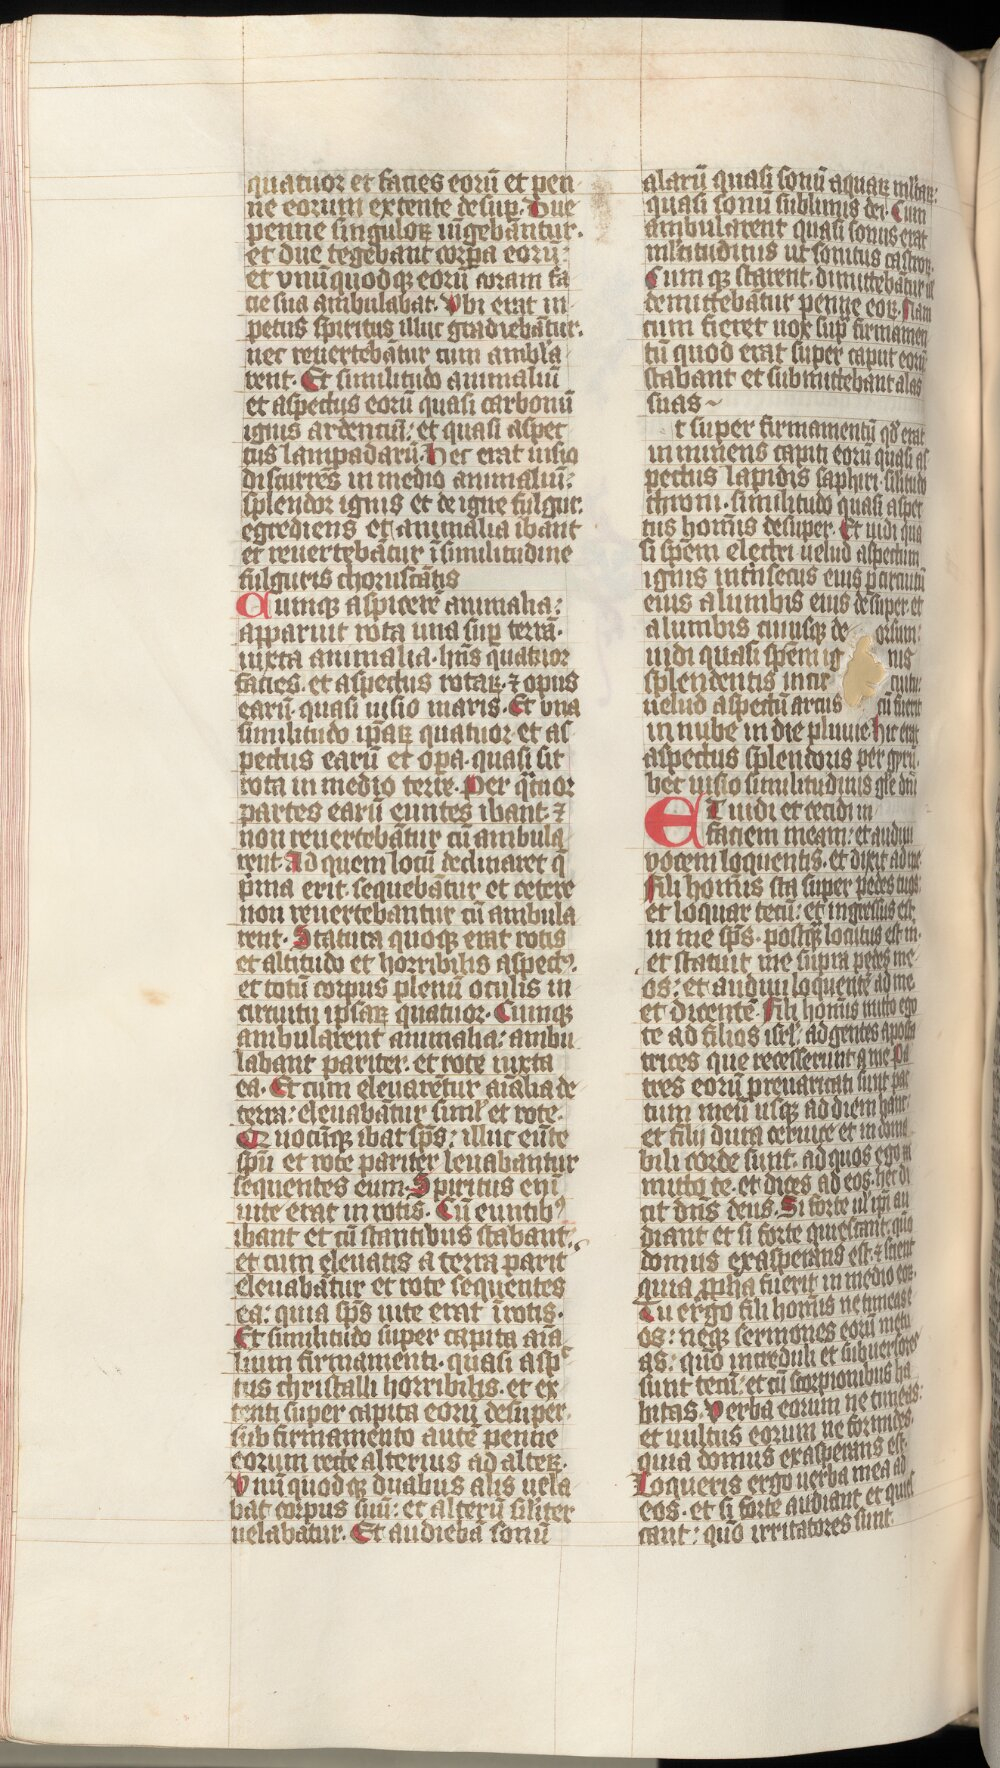 quatuor et facies eorū et pen
ne eorum extente desup̱. Due
penne singuloꝝ iūgebantur.
et due tegebant corpa eorū:
et vnūquodqꝫ eorū coram fa
cie sua ambulabat. Vbi erat in
petus spiritus illuc gradiebātur.
nec reuertebātur cum ambla
rent. Et similitudo animaliū
et aspectus eorū quasi carbonū
ignis ardentiū: et quasi aspec
tus lampadarū. Hec erat uisio
discurrēs in medio animaliū:
splendor ignis et de igne fulgur
egrediens et animalia ibant
et reuertebātur ī similitudine
fulguris choruscātis
Cumqꝫ aspicerē animalia:
apparuit rota una sup̱ terrā.
iuxta animalia. hn̄s quatuor
facies. et aspectus rotaꝝ. ⁊ opus
earū. quasi uisio maris. Et vna
similitudo ip̄aꝝ quatuor. et as
pectus earū et opa. quasi sit
rota in medio rote. Per q̄tuor
partes earū euntes ibant. ⁊
non reuertebātur cū ambula
rent. Ad quem locū declinaret q̄
p̄ma erat. sequebātur et cetere
non reuertebantur cū ambula
rent. Statura quoqꝫ erat rotis
et altitudo et horribilis aspectꝰ.
et totū corpus plenū oculis in
circuitu ipsaꝝ quatuor. Cumqꝫ
ambularent animalia: ambu
labant pariter. et rote iuxta
ea. Et cum eleuarētur aīalia de
terra: eleuabātur simˡ et rote.
Quocūqꝫ ibat sp̄s: illuc eūte
sp̄u et rote pariter leuabantur
sequentes eum. Spiritus enī
uite erat in rotis. Cū euntibꝰ
ibant et cū stantibus stabant:
et cum eleuatis a terra parit̄
eleuabātur et rote sequentes
ea: quia sp̄s uite erat ī rotis.
Et similitudo super capita aīa
lium firmamenti. quasi aspc̄
tus christalli horribilis. et ex
tenti super capita eorū desuper.
sub firmamento autē penne
eorum recte alterius ad alteꝝ.
Vnūquodqꝫ duabus alis uela
bat corpus suū: et alterū silīter
uelabatur. Et audiebā sonū
alarū quasi sonū aquaꝝ mltaꝝ:
quasi sonū sublimis dei. Cum
ambularent quasi sonus erat
mltitudinis ut sonitus castroꝝ.
Cumqꝫ starent. dimittebātur ul
demittebātur penne eoꝝ. Nam
cum fieret uox sup̱ firmamen
tū quod erat super caput eorū
stabant et submittebant alas
suas
t super firmamentū qđ erat
inminens capiti eorū quasi as
pectus lapidis saphiri. silitudo
throni. similitudo quasi aspec
tus hoīs desuper. Et uidi qua
si spēm electri uelud aspectum
ignis intrīsecus eius p̱ circuitū
eius a lumbis eius desuper. et
a lumbis eiusqꝫ deorsum:
uidi quasi spēm ignis
splendentis in circuitu:
uelud aspectū arcus cū fuerit
in nube in die pluuie. hic erat
aspectus splendoris per gyrū.
hec uisio similitudinis gl̄e dn̄i
ET uidi et cecidi in
faciem meam: et audiui
vocem loquentis. et dixit ad me
Fili hoīs sta super pedes tuos:
et loquar tecū: et ingressus est
in me sp̄s. postqꝫ locutus est m̄.
et statuit me supra pedes me
os: et audiui loquentē ad me
et dicentē. Fili hoīs mitto ego
te ad filios isrl̄. ad gentes aposta
trices que recesserunt a me. Pa
tres eorū preuaricati sunt pac
tum meū usqꝫ ad diem hanc.
et filij dura ceruice et indoma
bili corde sunt. ad quos ego
mitto te. et dices ad eos. hec di
cit dn̄s deus. Si forte ul ip̄i au
diant et si forte quiescant. qm̄
domus exasperans est. ⁊ scient
quia ppħa fuerit in medio eoꝝ.
Tu ergo fili hoīs ne timeas e
os: neqꝫ sermones eorū metu
as: qm̄ increduli et subuersores
sunt tecū: et cū scorpionibus ha
bitas. Verba eorum ne timeas:
et uultus eorum ne formides.
quia domus exasperans est.
Loqueris ergo uerba mea ad
eos. et si forte audiant et quies
cant: qm̄ irritatores sunt.